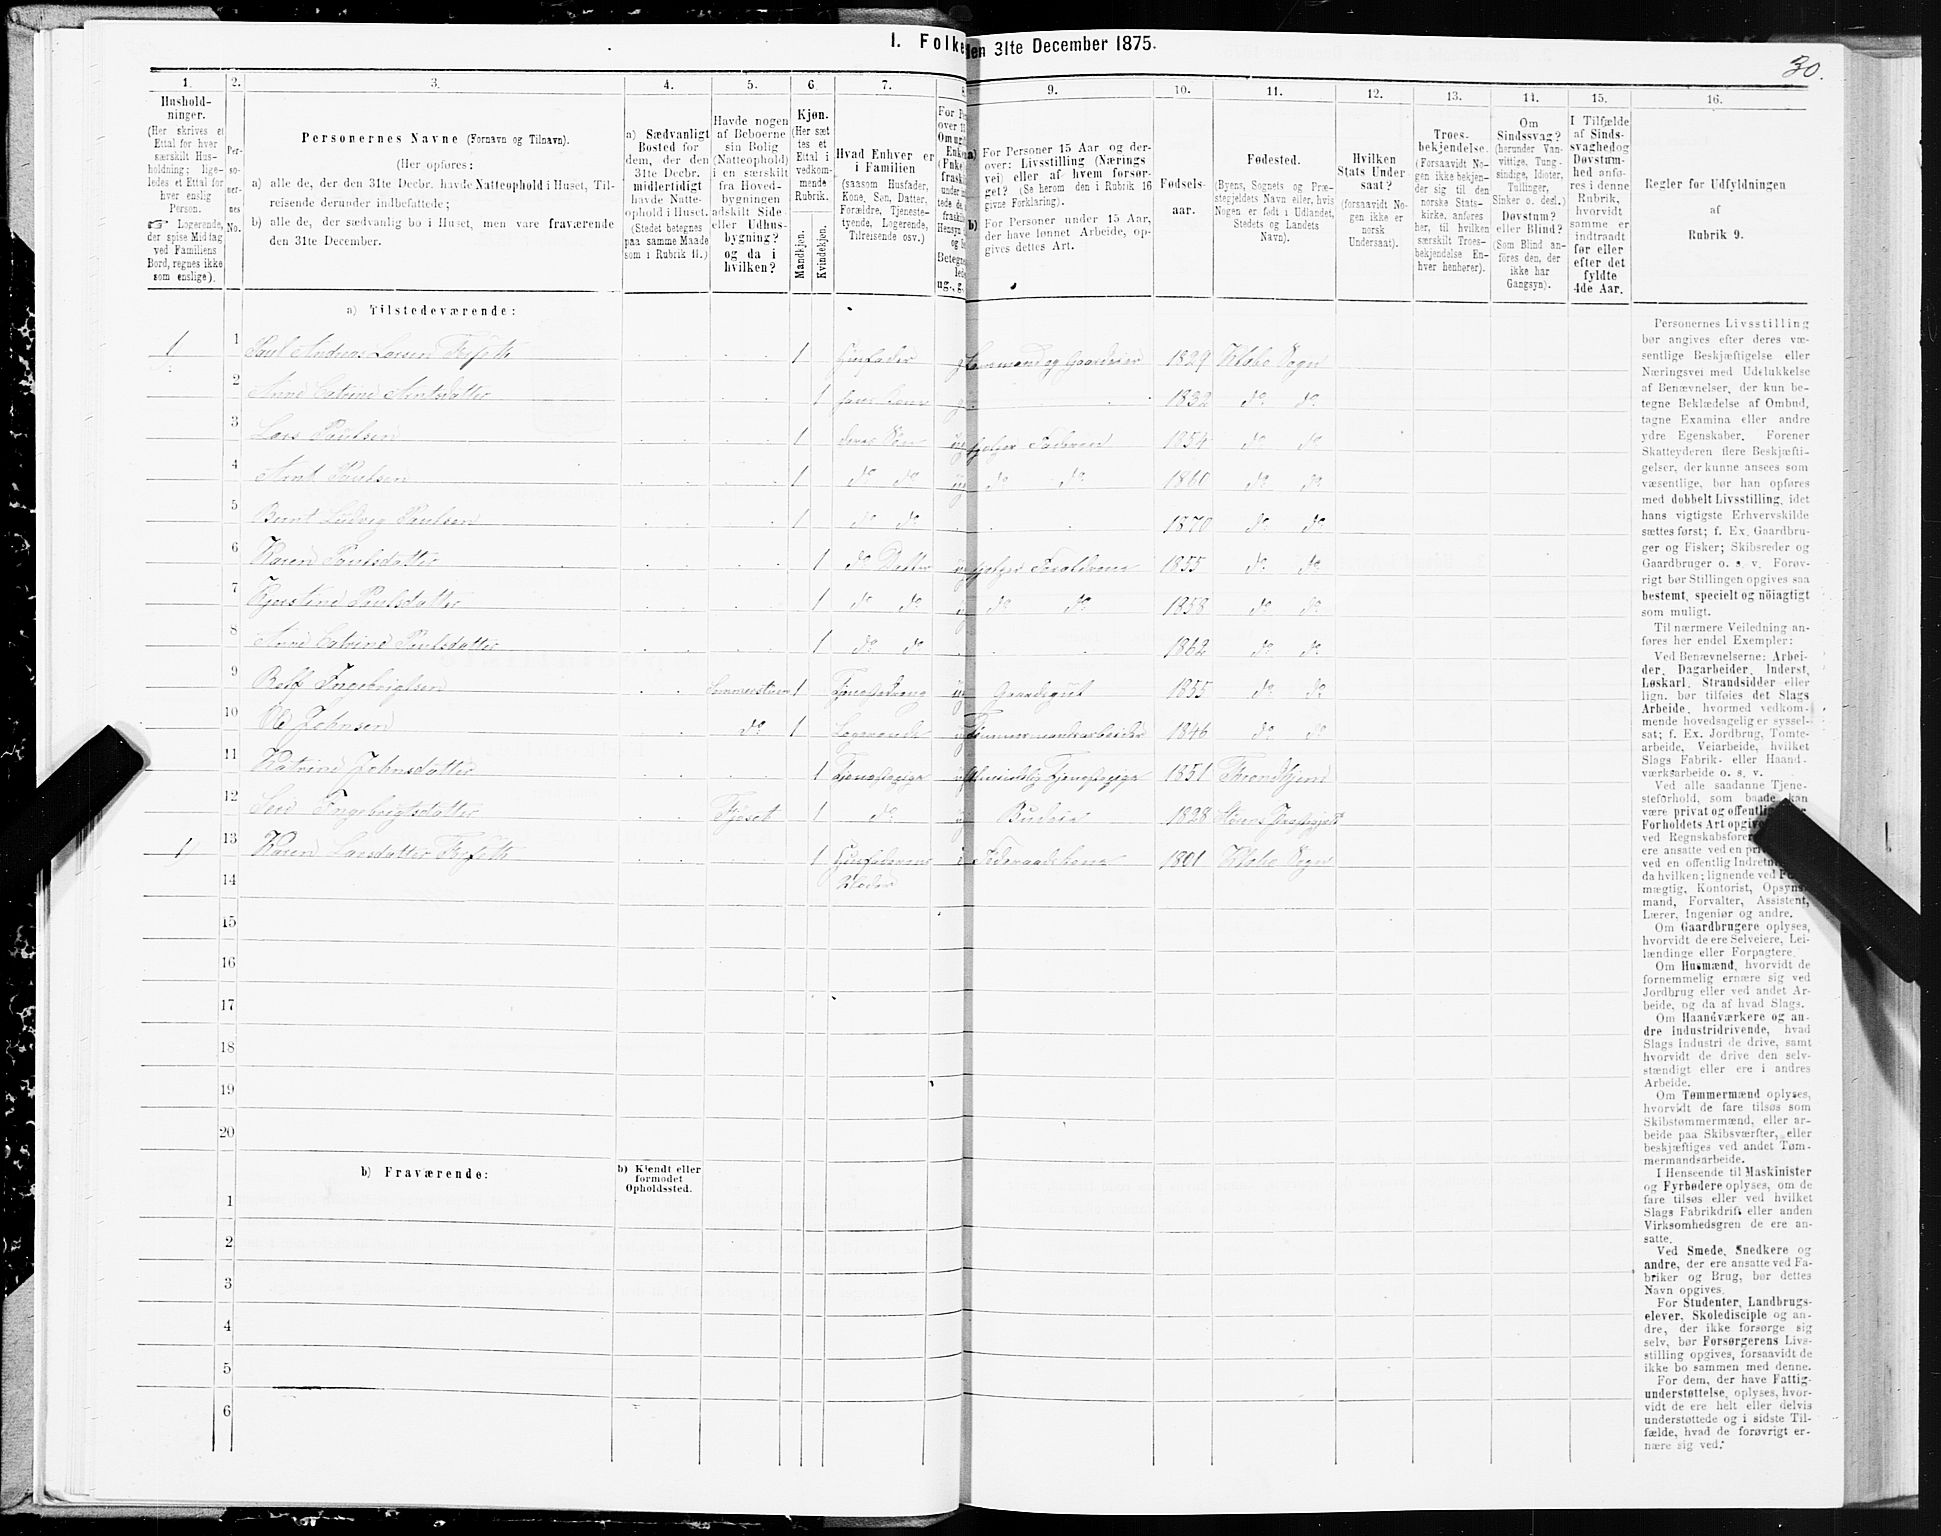 I. Folke
den 31te December 1875.
30.
1.
2.
3.
4.
5.
6.
7.
8.
9.
10.
11.
12.
13.
14.
15.
16.
Hushold-
ninger.
(Her skrives et
Ettal for hver
særskilt Hus-
holdning; lige-
ledes et Ettal for
hver enslig
Person.
☞ Logerende,
der spise Middag
ved Familiens
Bord, regnes ikke
som enslige).
Per-
so-
ner-
nes
No.
Personernes Navne (Fornavn og Tilnavn).
(Her opføres:
a) alle de, der den 31te Decbr. havde Natteophold i Huset, Til-
reisende derunder indbefattede;
b) alle de, der sædvanlig bo i Huset, men vare fraværende
den 31te December.
a) Sædvanligt
Bosted for
dem, der den
31te Decbr.
midlertidigt
havde Natte-
ophold i Huset.
(Stedet betegnes
paa samme Maade
som i Rubrik 11.)
Havde nogen
af Beboerne
sin Bolig
(Natteophold)
i en særskilt
fra Hoved-
bygningen
adskilt Side-
eller Udhus-
bygning?
og da i
hvilken?
Kjøn.
(Her sæt-
tes et
Ettal i
vedkom-
mende
Rubrik.
Mandkjøn.
Kvindekjøn.
Hvad Enhver er
i Familien
(saasom Husfader,
Kone, Søn, Datter,
Forældre, Tjeneste-
tyende, Logerende,
Tilreisende osv.)
a) For Personer 15 Aar og der-
over: Livsstilling (Nærings
vei) eller af hvem forsør-
get? (Se herom den i Rubrik 16
givne Forklaring).
b) For Personer under 15 Aar,
der have lønnet Arbeide, op-
gives dettes Art.
Fødsels-
aar.
Fødested.
(Byens, Sognets og Præ-
stegjeldets Navn eller, hvis
Nogen er født i Udlandet,
Stedets og Landets
Navn).
Hvilken
Stats Under
saat?
(forsaavidt No-
gen ikke er
norsk
Undersaat).
Troes-
bekjendelse.
(Forsaavidt No-
gen ikke bekjen-
der sig til den
norske Stats-
kirke, anføres
her, til hvilken
særskilt Troes-
bekjendelse En-
hver henhører).
Om
Sindssvag?
(herunder Van-
vittige, Tung-
sindige, Idioter,
Tullinger,
Sinker o. desl.)
Døvstum?
eller Blind?
(Som Blind an-
føres den, der
ikke har
Gangsyn).
I Tilfælde
af Sinds-
svaghed og
Døvstum-
hed anfø-
res i denne
Rubrik,
hvorvidt
samme er
indtraadt
før eller
efter det
fyldte
4de Aar.
Regler for Udfyldningen
af
Rubrik 9.
a) Tilstedeværende:
1 1 Paul Andreas Larsen Tesseth 1 Husfader g Gaardeier 1829 Klæbo Sogn
2 Anne Catrine Arntsdatter 1 hans Kone g 1832 do do
3 Lars Paulsen 1 deres Søn ug hjelper Faderen 1854 do do
4 Arnt Paulsen 1 do do ug do do 1860 do do
5 Bernt Ludvig Paulsen 1 do do 1870 do do
6 Karen Paulsdatter 1 do Datter ug hjelper Forældrene 1855 do do
7 Kjerstine Paulsdatter 1 do do ug do do 1858 do do
8 Anne Catrine Paulsdatter 1 do do 1862 do do
9 Rolf Ingebrigtsen Sommerstuen 1 Tjenestedreng ug Gaardsgut 1855 do do
10 Ole Johnsen do 1 Logerende ug Tømmermandsarbeider 1846 do do
11 Katrine Johnsdatter 1 Tjenestepige ug Almindelig Tjenestepige 1851 Throndhjem
12 Ingebrigtsdatter Fjøset 1 do ug Budeie 1828 Størens Præstegjeld
1 13 Karen Larsdatter Tesseth 1 Husfaderens Føderaadskone 1801 Klæbo Sogn
14 Moder
15
16
17
18
19
20
b) Fraværende:
b) Kjendt eller
formodet
Opholdssted.
1
2
3
4
5
6
Personernes Livsstilling
bør angives efter deres væ-
sentlige Beskjæftigelse eller
Næringsvei med Udelukkelse
af Benævnelser, der kun be-
tegne Beklædelse af Ombud,
tagne Examina eller andre
ydre Egenskaber. Forener
Skatteyderen flere Beskjæfti-
gelser, der kunne ansees som
væsentlige, bør han opføres
med dobbelt Livsstilling, idet
hans vigtigste Erhvervskilde
sættes først; f. Ex. Gaardbru-
ger og Fisker; Skibsreder og
Gaardbruger o. s. v. Forøv-
rigt bør Stillingen opgives saa
bestemt, specielt og nöiagtigt
som muligt.
Til nærmere Veiledning an-
føres her endel Exempler:
Ved Benævnelserne: Arbei-
der, Dagarbeider, Inderst,
Løskarl, Strandsidder eller
lign. bør tilføies det Slags
Arbeide, hvormed vedkom-
mende hovedsagelig er syssel-
sat; f. Ex. Jordbrug, Tomte-
arbeide, Veiarbeide, hvilket
Slags Fabrik- eller Haand-
værksarbeide o. s. v.
Ved alle saadanne Tjene-
steforhold, som baade kan
være privat og offentlig
Forholdets Art opgiv
ved Regnskabsfører
ere ansatte ved en pri
ved en offentlig Indretn
da hvilken; lignende ved
mægtig, Kontorist, Opsyns-
mand, Forvalter, Assistent,
Lærer, Ingeniør og andre.
Om Gaardbrugere oplyses,
hvorvidt de ere Selveiere, Lei-
lændinge eller Forpagtere.
Om Husmænd, hvorvidt de
fornemmelig ernære sig ved
Jordbrug eller ved andet Ar-
beide, og da af hvad Slags.
Om Haandværkere og an-
dre Industridrivende, hvad
Slags Industri de drive, samt
hvorvidt de drive den selv-
stændigt eller ere i andres
Arbeide.
Om Tømmermænd oplyses,
hvorvidt de fare tilsøs som
Skibstømmermænd, eller ar-
beide paa Skibsværfter, eller
beskjæftiges ved andet Tøm-
mermandsarbeide.
I Henseende til Maskinister
og Fyrbødere oplyses, om de
fare tilsøs eller ved hvilket
Slags Fabrikdrift eller anden
Virksomhedsgren de ere an-
satte.
Ved Smede, Snedkere og
andre, der ere ansatte ved Fa-
briker og Brug, bør dettes
Navn opgives.
For Studenter, Landbrugs-
elever, Skoledisciple og an-
dre, der ikke forsørge sig
selv, bør Forsørgerens Livs-
stilling opgives, forsaavidt de
ikke bo sammen med denne.
For dem, der have Fattig-
understøttelse, oplyses, hvor-
vidt de ere helt eller delvis
understøttede og i sidste Til-
fælde, hvad de forøvrigt er-
nære sig ved.